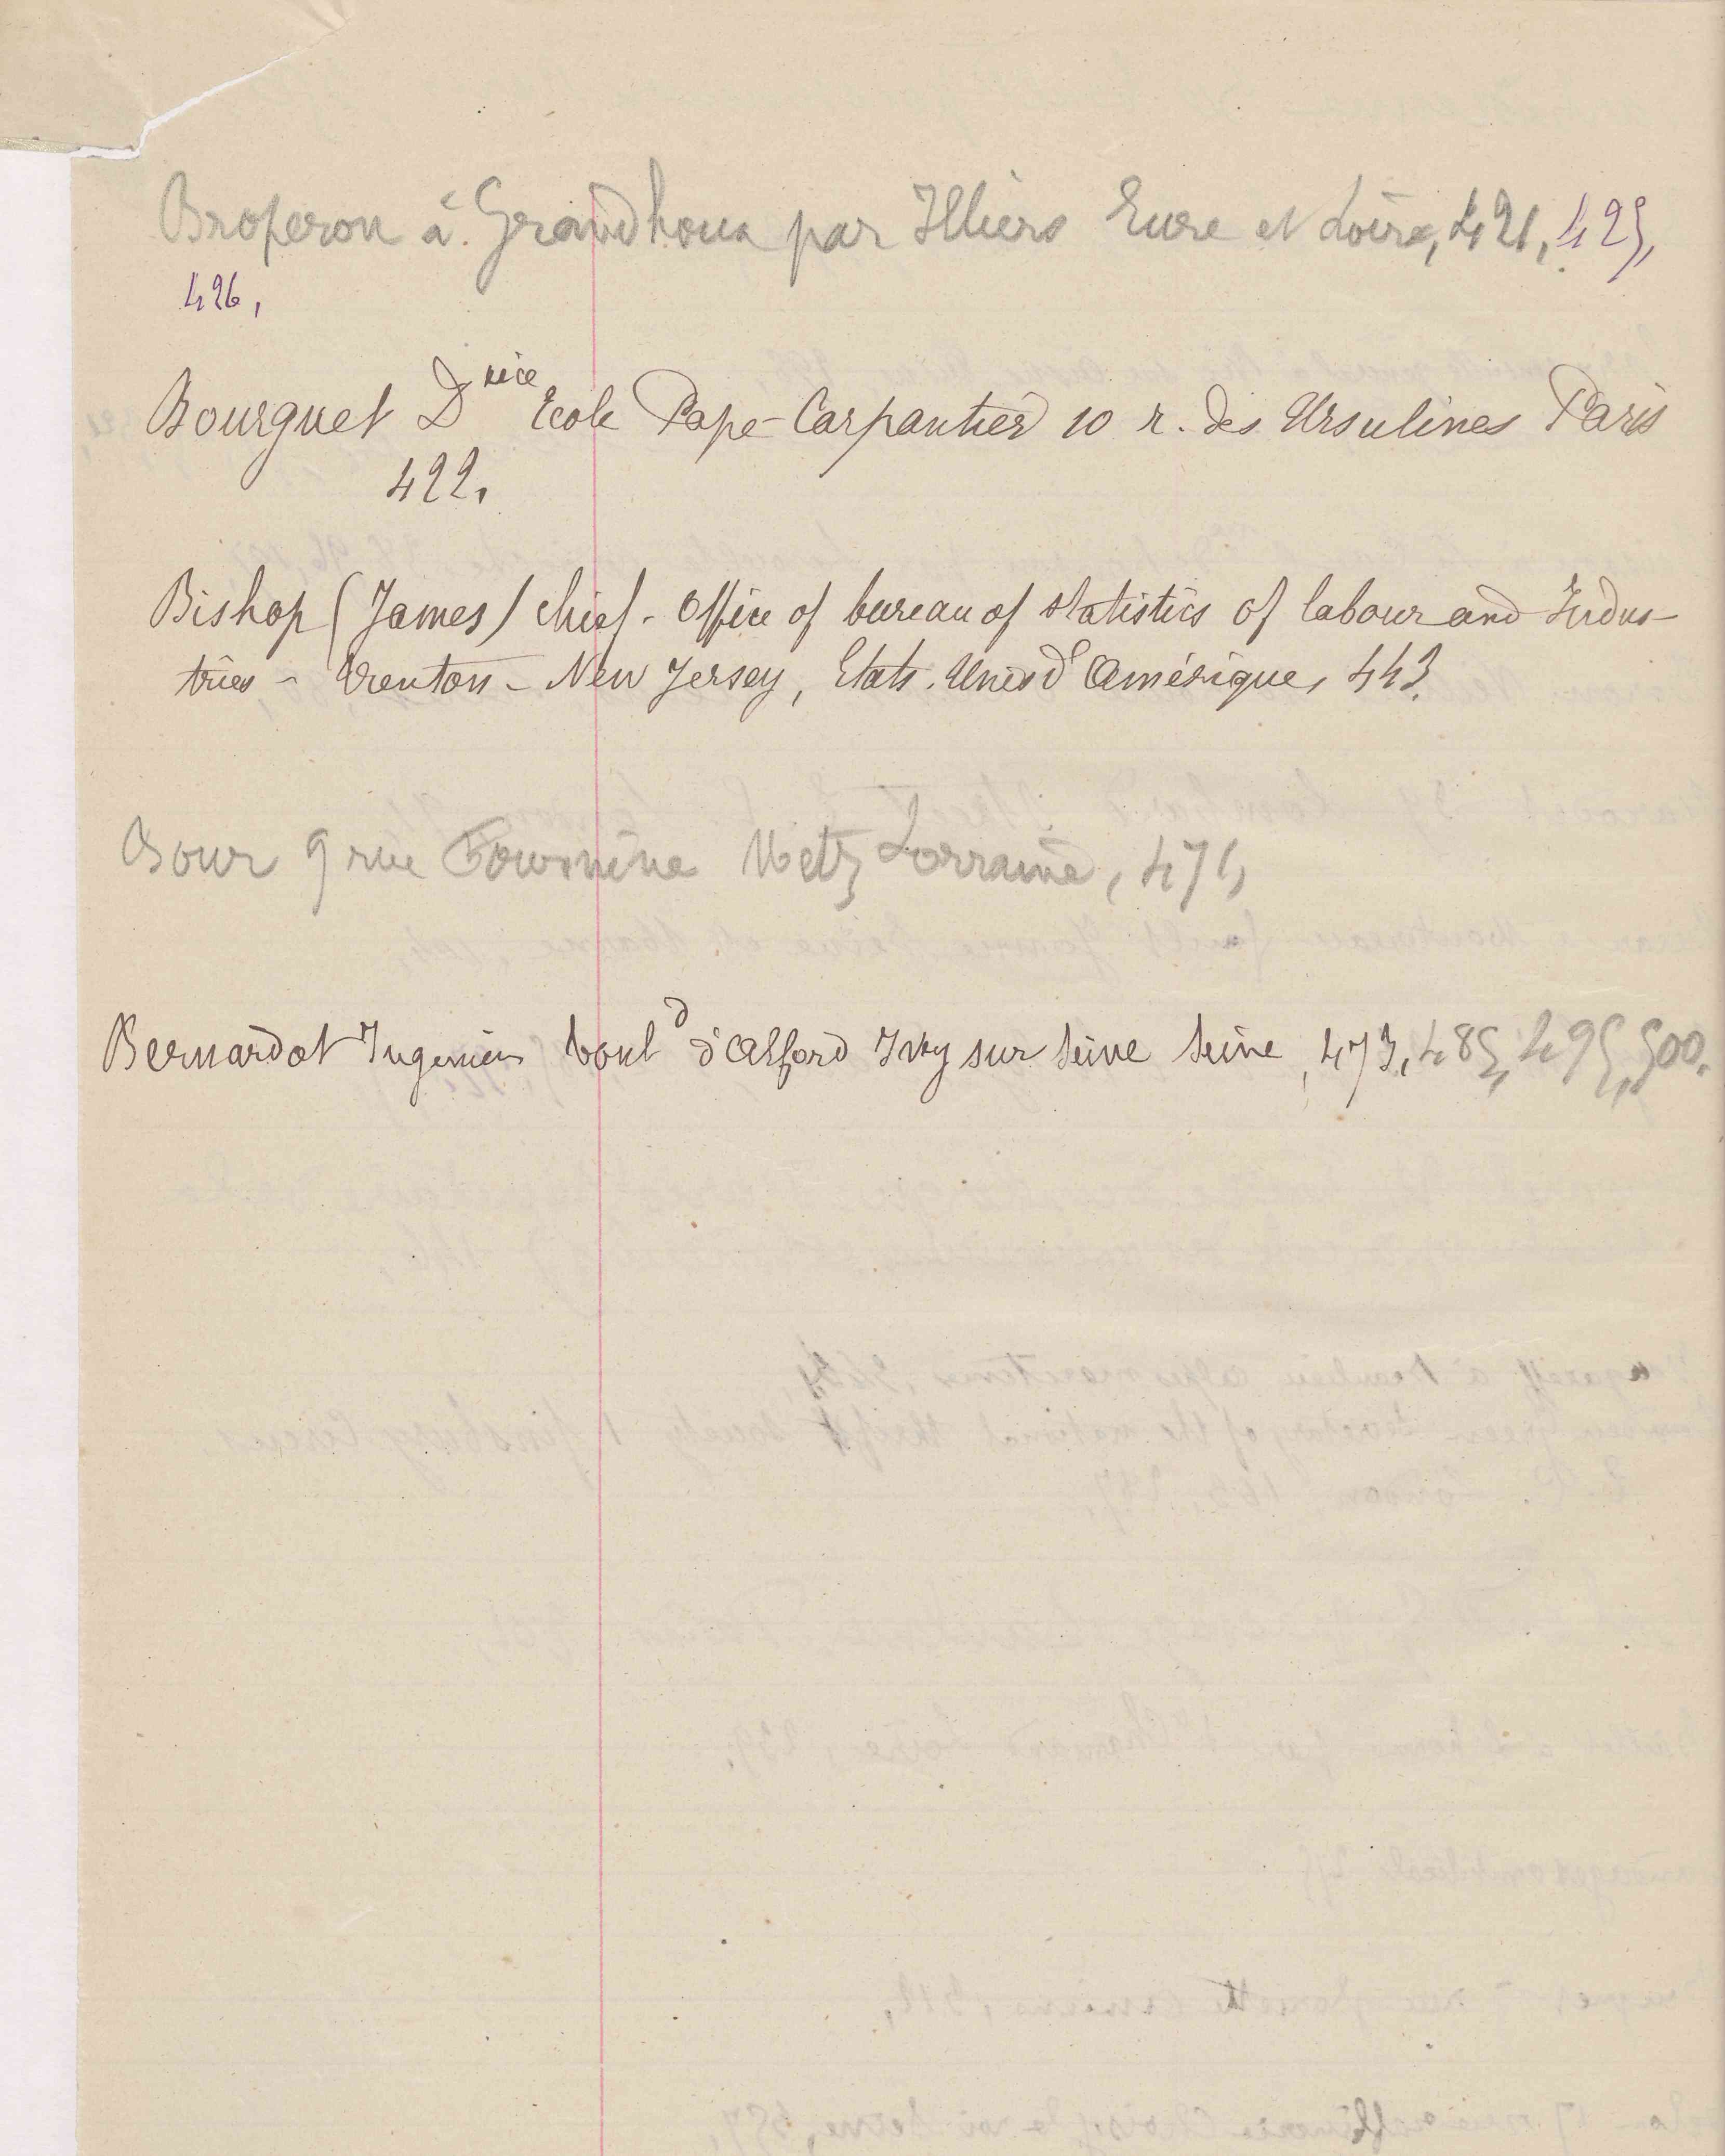 Brosseron à Grandhoux par Illiers Eure et Loire, 421, 425,
426,
Bourguet Drice Ecole Pape-Carpantier 10 r. des Ursulines Paris
422,
Bishop (James) chief - Office of bureau of statistics of labour and Indus-
tries - Trenton - New Jersey, Etats-Unis d'Amérique, 443,
Bour 9 rue Metz Lorraine, 471,
Bernardot Ingenieur bould d'Alford Ivry sur Seine Seine, 473, 485, 495, 500.